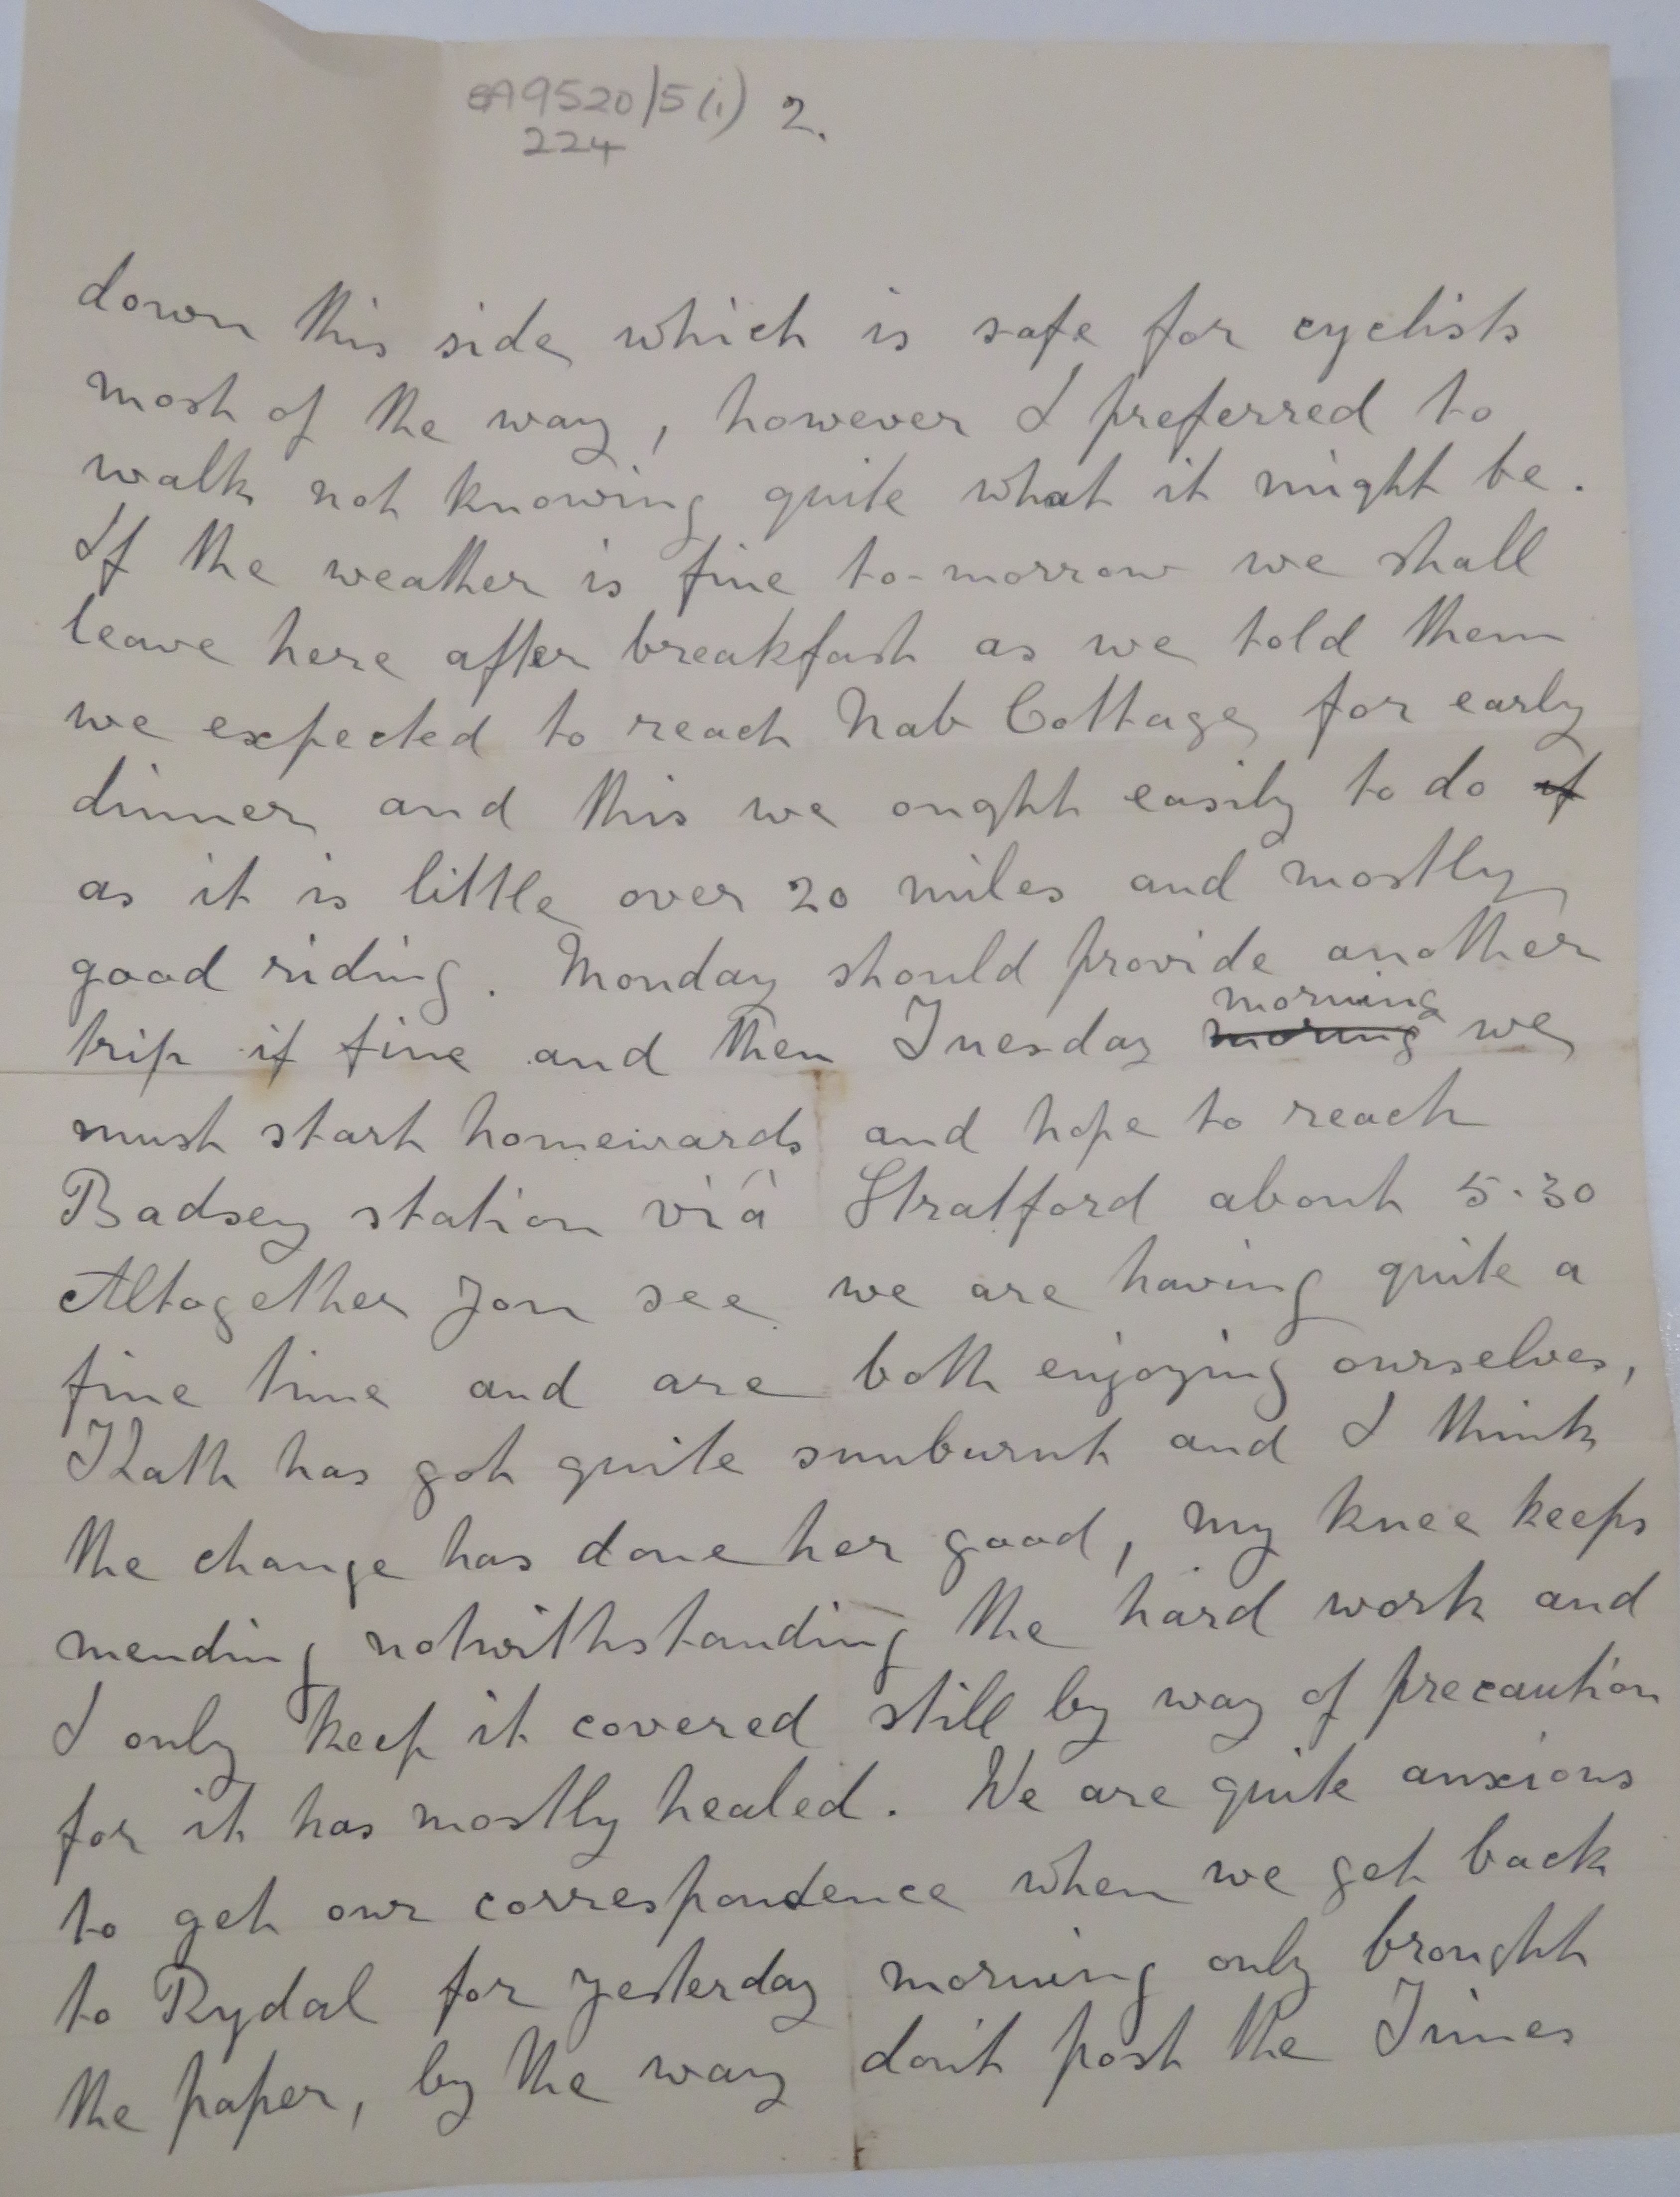 BA9520/5(i) 2.
224
down this side which is safe for cyclists
most of the way, however I preferred to
walk not knowing quite what it might be.
If the weather is fine to-morrow we shall
leave here after breakfast as we told them
we expected to reach Nab Cottage for early
dinner and this we ought easily to do if
as it is little over 20 miles and mostly
good riding. Monday should provide another
morning
trip if fine and then Tuesday moring we
must start homewards and hope to reach
Badsey station viâ Stratford about 5.30
Altogether you see we are having quite a
fine time and are both enjoying ourselves,
Kath has got quite sunburnt and I think
the change has done her good, my knee keeps
mending notwithstanding the hard work and
I only keep it covered still by way of precaution
for it has mostly healed. We are quite anxious
to get our correspondence when we get back
to Rydal for yesterday morning only brought
the paper, by the way don't post the Times